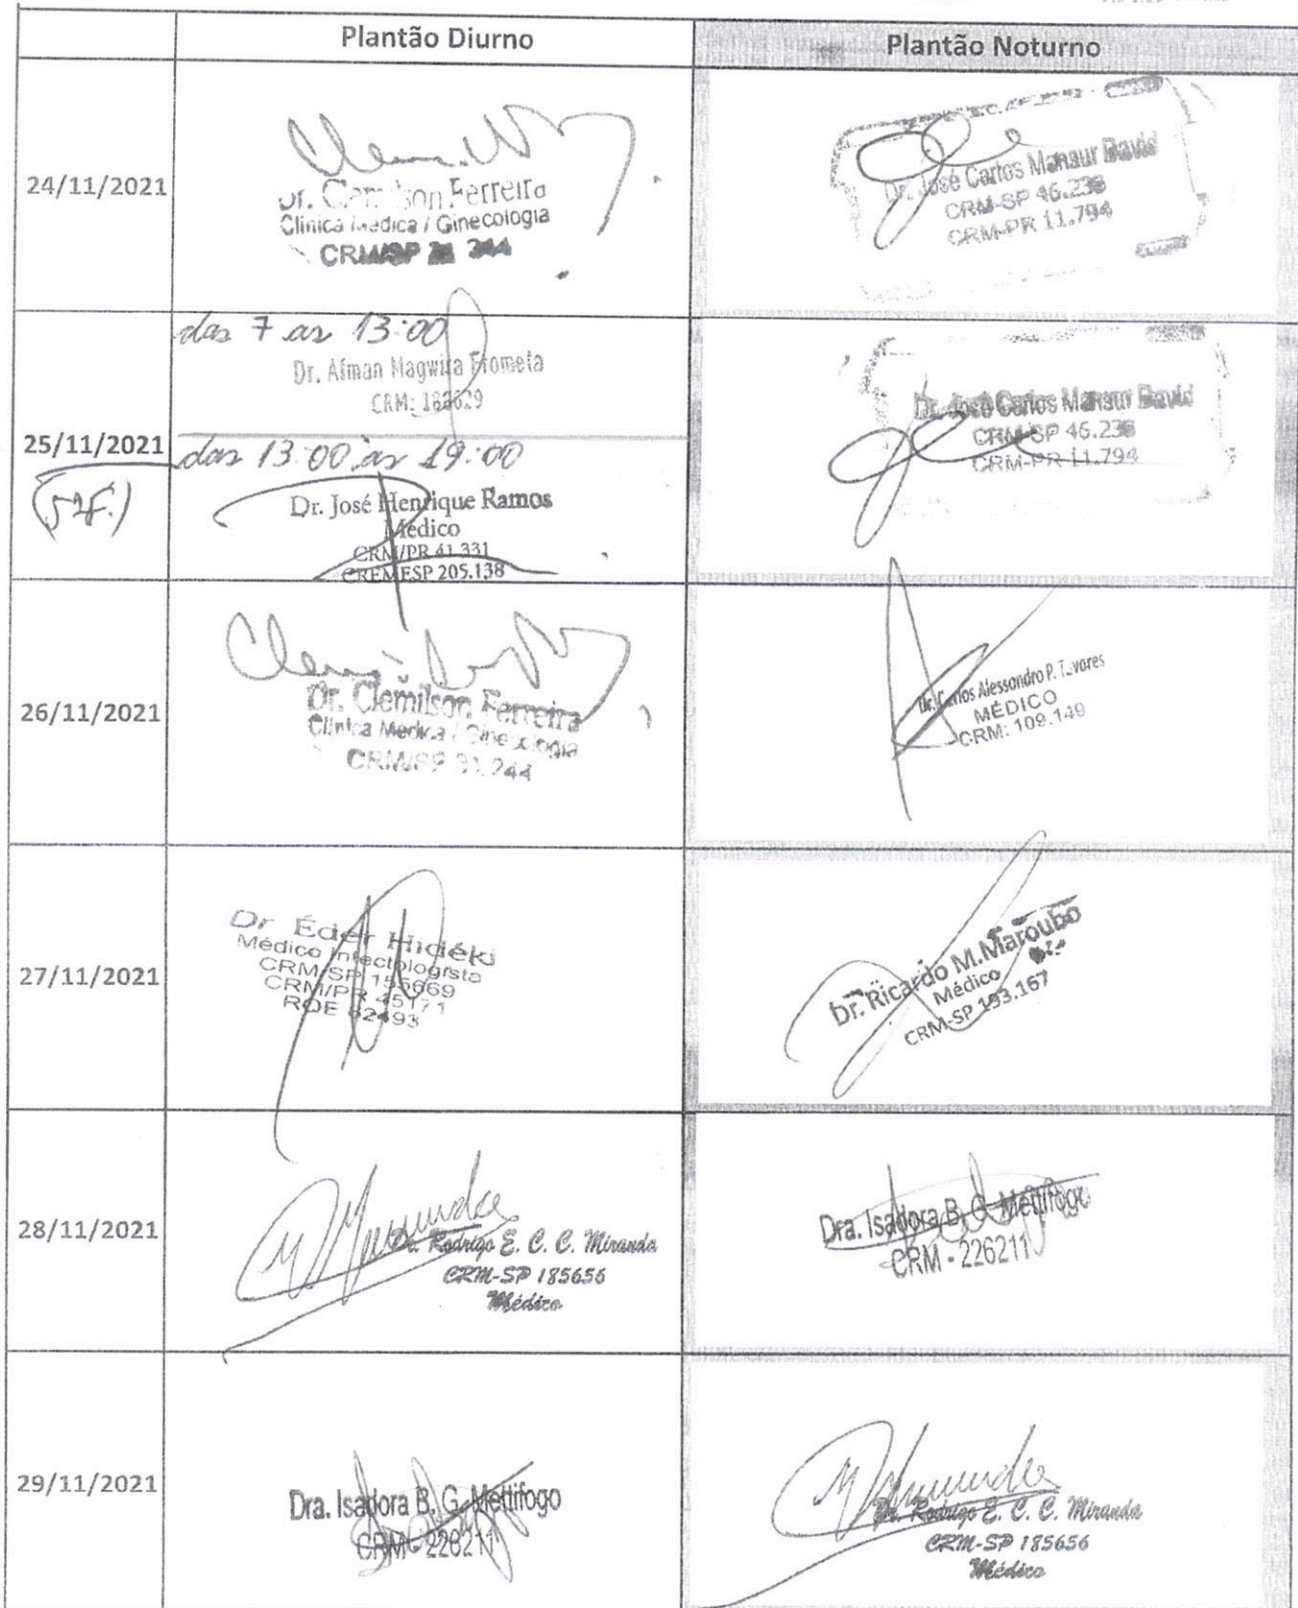 Plantão Diurno
Plantão Noturno
24/11/2021
Dr. Clemilson Ferreira
Clínica Médica / Ginecologia
CRM/SP 244
Dr. José Carlos Mansur David
CRM-SP 46.238
CRM-PR 11.794
25/11/2021
das 7 as 13:00
Dr. Afman Magwira Frometa
CRM:
das 13:00 às 19:00
Dr. José Henrique Ramos
Médico
CRM/PR 41.331
CREMESP 205.138
Dr. José Carlos Mansur David
CRM-SP 46.238
CRM-PR 11.794
26/11/2021
Dr. Clemilson Ferreira
Clínica Médica / Ginecologia
CRM/SP 31.244
Dr. Carlos Alessandro P. Tavares
MÉDICO
CRM: 109.149
27/11/2021
Dr Éder Hidéki
Médico Infectologista
CRM/SP 155669
CRM/PR 45171
RQE 62493
Dr. Ricardo M. Maroubo
Médico
CRM-SP 193.167
28/11/2021
Dr. Rodrigo E. C. C. Miranda
CRM-SP 185656
Médico
Dra. Isadora B. G. Mettifogo
CRM - 226211
29/11/2021
Dra. Isadora B. G. Mettifogo
CRM - 226211
Dr. Rodrigo E. C. C. Miranda
CRM-SP 185656
Médico